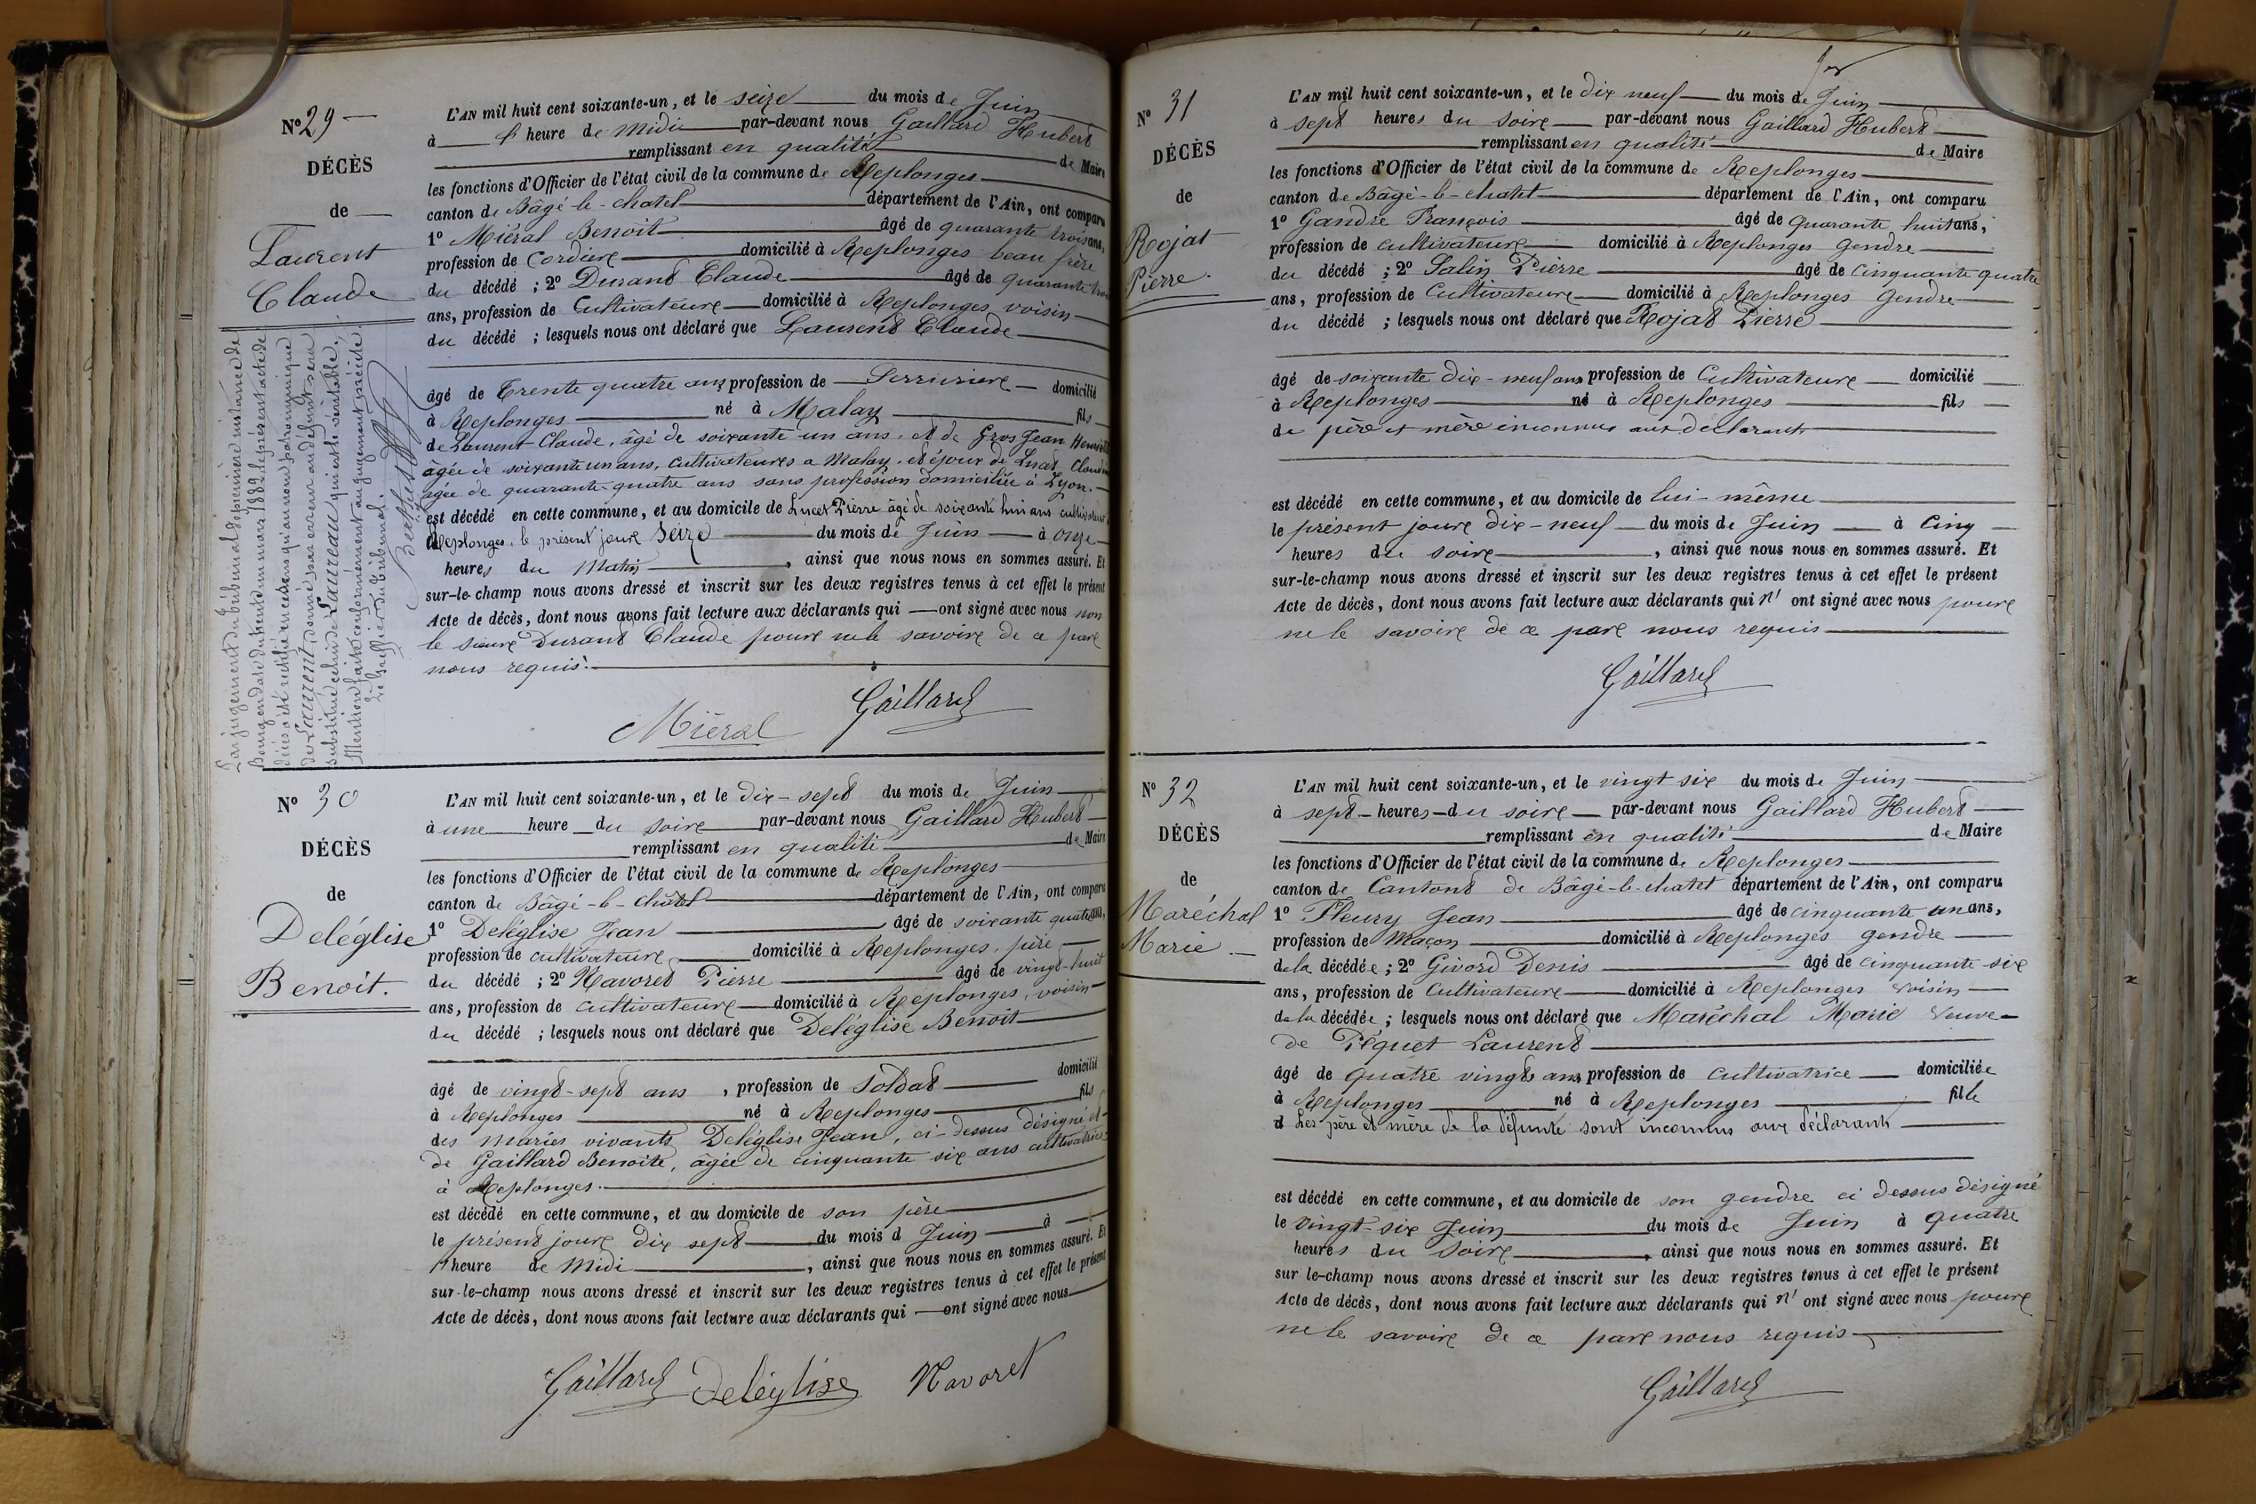 N° 29
DÉCÈS
de
Laurent
Claude
L'AN mil huit cent soixante-un, et le seize du mois de Juin
à heure de Midi par-devant nous Gaillard Hubert
remplissant en qualité de Maire
les fonctions d'Officier de l'état civil de la commune de Replonges
canton de Bâgé-le-chatel département de l'Ain, ont comparu
1° Miéral Benoit âgé de quarante trois ans,
profession de Cordier domicilié à Replonges beau frère
du décédé ; 2° Durand Claude âgé de quarante
ans, profession de Cultivateure domicilié à Replonges voisin
du décédé ; lesquels nous ont déclaré que Laurend Claude
âgé de Trente quatre ans profession de Serrurier domicilié
à Replonges né à Malay fils
de Laurent Claude, âgé de soixante un ans, et de Gros Jean
âgée de soixante un ans, cultivateures a Malay, et époux de
âgée de quarante-quatre ans sans profession domiciliée à Lyon.
est décédé en cette commune, et au domicile de Lucet Pierre âgé de soixante huit ans cultivateur
Replonges, le présent joure Seize du mois de Juin à onze
heures du Matin, ainsi que nous nous en sommes assuré. Et
sur-le-champ nous avons dressé et inscrit sur les deux registres tenus à cet effet le présent
Acte de décès, dont nous avons fait lecture aux déclarants qui ont signé avec nous non
le sieure Durand Claude poure ne le savoire de ce pare
nous requis.
Miéral Gaillard
Par jugement du tribunal de première instance de
Bourg en date du trente un mars 1882, le présent acte de
décès a été rectifié en ce sens qu'au nom patronymique
de Laurent, donné par erreur au défunt sera
substitué celui de Laureau, qui est le véritable.
Mention faite conformément au jugement précité
Le Greffier du Tribunal.
N° 30
DÉCÈS
de
Deléglise
Benoit.
L'AN mil huit cent soixante-un, et le dix-sept du mois de Juin
à une heure du soire par-devant nous Gaillard Hubert
remplissant en qualité de Maire
les fonctions d'Officier de l'état civil de la commune de Replonges
canton de Bâgé-le-châtel département de l'Ain, ont comparu
1° Deléglise Jean âgé de soixante quatre ans,
profession de cultivateure domicilié à Replonges, père
du décédé ; 2° Navoret Pierre âgé de vingt-huit
ans, profession de cultivateure domicilié à Replonges, voisin
du décédé ; lesquels nous ont déclaré que Deléglise Benoit
âgé de vingt-sept ans, profession de Soldat domicilié
à Replonges né à Replonges fils
des mariés vivants Deléglise Jean, ci-dessus désigné et
de Gaillard Benoite, âgée de cinquante six ans cultivatrice
à Replonges.
est décédé en cette commune, et au domicile de son père
le présent joure dix sept du mois d Juin à
1 heure de Midi, ainsi que nous nous en sommes assuré. Et
sur-le-champ nous avons dressé et inscrit sur les deux registres tenus à cet effet le présent
Acte de décès, dont nous avons fait lecture aux déclarants qui ont signé avec nous
Gaillard Deléglise Navoret
N° 31
DÉCÈS
de
Rojat
Pierre.
L'AN mil huit cent soixante-un, et le dix neuf du mois de Juin
à sept heures du soire par-devant nous Gaillard Hubert
remplissant en qualité de Maire
les fonctions d'Officier de l'état civil de la commune de Replonges
canton de Bâgé-le-chatel département de l'Ain, ont comparu
1° Gandre François âgé de quarante huit ans,
profession de cultivateure domicilié à Replonges gendre
du décédé ; 2° Salin Pierre âgé de cinquante quatre
ans, profession de Cultivateure domicilié à Replonges Gendre
du décédé ; lesquels nous ont déclaré que Rojat Pierre
âgé de soixante dix-neuf ans profession de Cultivateure domicilié
à Replonges né à Replonges fils
de père et mère inconnus aux déclarants
est décédé en cette commune, et au domicile de lui-même
le présent joure dix-neuf du mois de Juin à cinq
heures du soire, ainsi que nous nous en sommes assuré. Et
sur-le-champ nous avons dressé et inscrit sur les deux registres tenus à cet effet le présent
Acte de décès, dont nous avons fait lecture aux déclarants qui n' ont signé avec nous poure
ne le savoire de ce pare nous requis
Gaillard
N° 32
DÉCÈS
de
Maréchal
Marie
L'AN mil huit cent soixante-un, et le vingt six du mois de Juin
à sept heures du soire par-devant nous Gaillard Hubert
remplissant en qualité de Maire
les fonctions d'Officier de l'état civil de la commune de Replonges
canton de Cantont de Bâgé-le-chatel département de l'Ain, ont comparu
1° Fleury Jean âgé de cinquante un ans,
profession de Maçon domicilié à Replonges gendre
de la décédée ; 2° Givord Denis âgé de cinquante six
ans, profession de Cultivateure domicilié à Replonges voisin
de la décédée ; lesquels nous ont déclaré que Maréchal Marie veuve
de Péquet Laurent
âgé de quatre vingts ans profession de cultivatrice domiciliée
à Replonges né à Replonges fille
d Les père et mère de la défunte sont inconnus aux déclarants
est décédé en cette commune, et au domicile de son gendre ci dessus désigné
le vingt-six Juin du mois de Juin à quatre
heures du soire, ainsi que nous nous en sommes assuré. Et
sur le-champ nous avons dressé et inscrit sur les deux registres tenus à cet effet le présent
Acte de décès, dont nous avons fait lecture aux déclarants qui n' ont signé avec nous poure
ne le savoire de ce pare nous requis
Gaillard